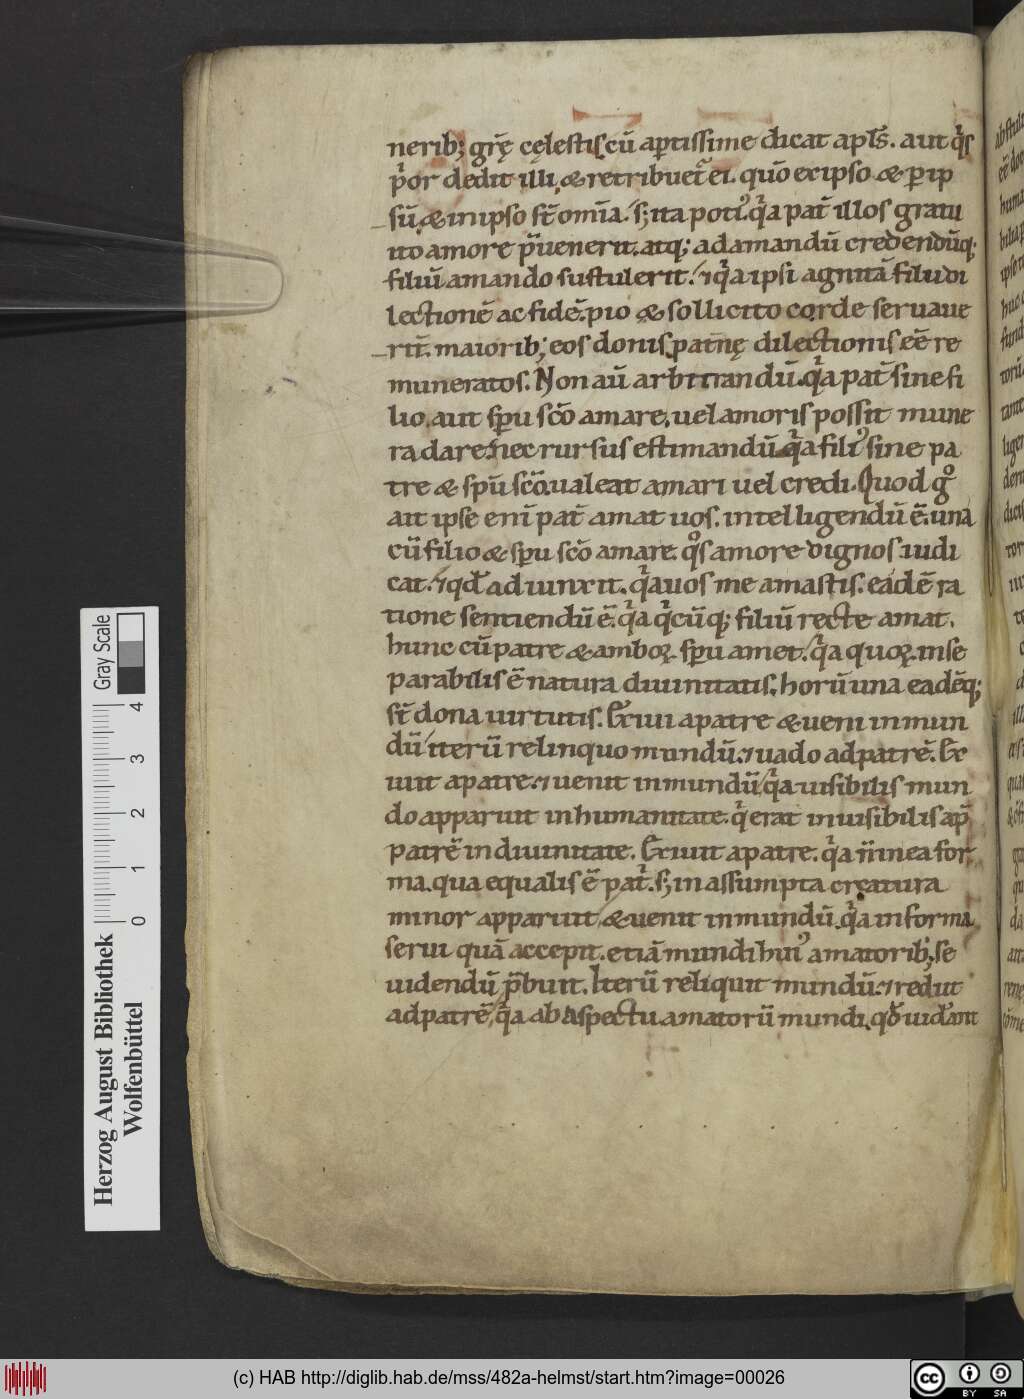 nerib; grę̄ cęlestis cū aꝑtissime dicat apl̄s. aut qͥs
pͥor dedit illi, & retribuet̄ ei. quō ex ipso & ꝑ ip
sū, & in ipso st̄ om̄ia. s; ita potiꝰ. qͥa pat̄ illos gratu
ito amore p̄uenerit. atq; ad amandū credendūq;
filiū amando sustulerit. ⁊ qͥa ipsi agnitā filii di
lectionē ac fidē. pio & sollicito corde seruaue
rit̄. maiorib; eos donis patnę̄ dilectionis eē re
muneratos. Non aū arbitrandū. qͥa pat̄ sine fi
lio, aut sp̄u sc̄o amare, uel amoris possit mune
ra dare. nec rursus estimandū. qͥa filiꝰ sine pa
tre & sp̄u sc̄o. ualeat amari uel credi. Quod gͦ
ait ipse eni pat̄ amat uos. intelligendū ē. una
cū filio & sp̄u sc̄o amare. qͦs amore dignos iudi
cat. ⁊ qd̄ adiunxit. qͥa uos me amastis. eadē ra
tione sentiendū ē. qͥa qͥcūq; filiū recte amat.
hunc cū patre & amboꝝ sp̄u amet. qͥa quoꝝ inse
parabilis ē natura diuinitatis, horū una eadēq;
st̄ dona uirtutis. Exiui a patre & ueni in mun
dū. iterū relinquo mundū. ⁊ uado ad patrē. Ex
iuit a patre. ⁊ uenit in mundū. qͥa uisibilis mun
do apparuit in humanitate. qͥ erat inuisibilis ap̄
patrē in diuinitate. Exiuit a patre. qͥa n̄ in ea for
ma. qua equalis ē pat̄. s; in assumpta creatura
minor apparuit. & uenit in mundū. qͥa in forma
serui quā accepit. etiā mundi huiꝰ amatorib; se
uidendū p̄buit. Iterū reliquit mundū. ⁊ rediit
ad patrē. qͥa ab aspectu amatorū mundi. qd̄ uid̄ant
Herzog August Bibliothek
Wolfenbüttel
0 1 2 3 4
Gray Scale
(c) HAB http://diglib.hab.de/mss/482a-helmst/start.htm?image=00026
cc BY SA